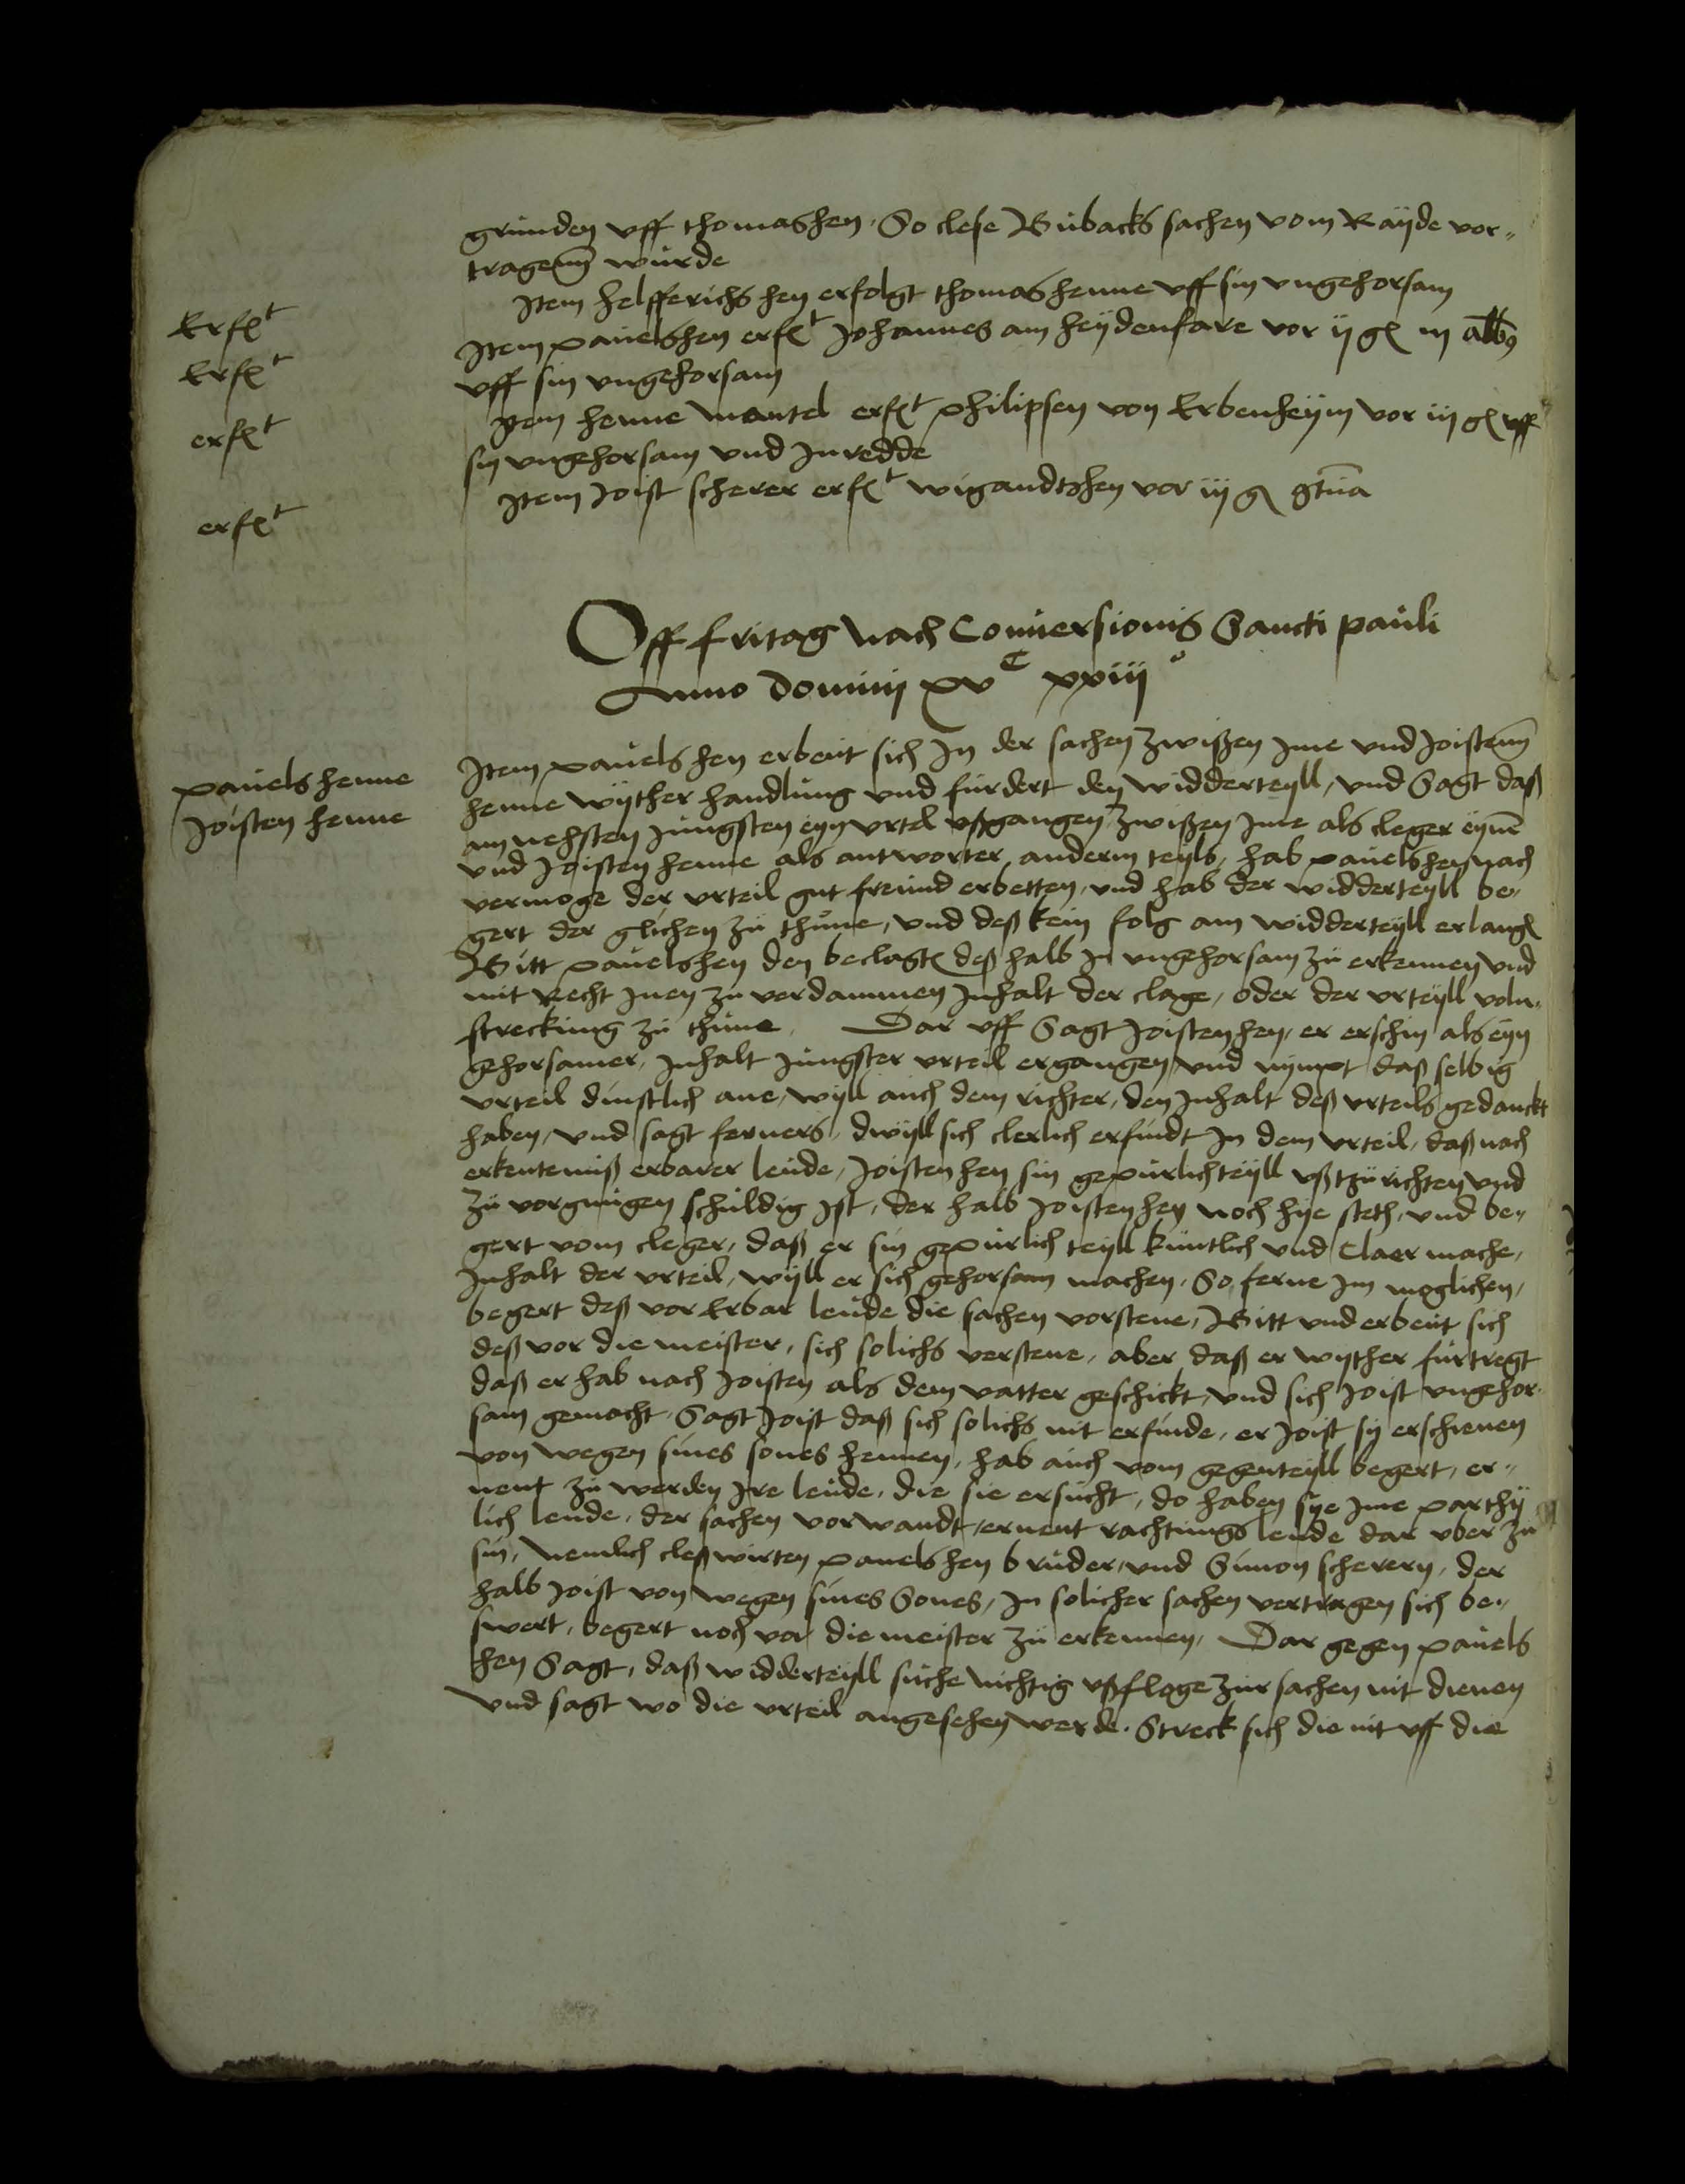 grunden uff thomashen. So clese Bubacks sachen vom Rayde vor-
tragenn wurde
Erf<sup>t</sup>
Item helfferichs hen erfolgt thomas henne uff sin ungehorsam
Erf<sup>t</sup>
Item pauelshen erf<sup>t</sup> Johannes am heydenfare vor ij g iij albus
uff sin ungehorsam
erf<sup>t</sup>
Item henne mantel erf<sup>t</sup> philipsen von Erbenheym vor iij g uff
sin ungehorsam und Inredde
erf<sup>t</sup>
Item Joist scherer erf<sup>t</sup> wigandtzhen vor iij g
Off fritag Nach Conuersionis Sancti pauli
Anno domini xv<sup>c</sup> xxiij<sup>o</sup>
pauels henne
Joisten henne
Item pauels hen erbeut sich In der sachen zwißen Ime und Joistenn
henne wyther handlung und furdert den widderteyll, und Sagt daß
am nehsten Jungsten eyn urtel ußgangen zwißen Ime als cleger eyns
und Joisten henne als antworter anderm teyls, hab pauelshen nach
vermoge der urteil gut freund erbetten, und hab der widderteyll be-
gert der glichen zu thune, und deß kein folg am widderteyll erlangt
Bitt pauelshen den beclagten deß halb In ungehorsam zu erkennen und
mit Recht Inen zu verdammen Inhalt der clage, oder der urteyll voln-
streckung zu thune. Dar uff Sagt Joistenhen, er erschin als eyn
gehorsamer, Inhalt Jungster urteil ergangen und nympt daß selbig
urteil dinstlich ane, wyll auch dem richter, den Inhalt deß urteils gedanckt
haben, und sagt ferners, dwyll sich clerlich erfindt In dem urteil, daß nach
erkentenuß erbarer leude, Joisten hen sin gepurlich teyll ußtzurichten und
zu vergnugen schuldig Ist, der halb Joisten hen noch hye steth, und be-
gert vom cleger, daß er sin gepurlich teyll kuntlich und Claer mache,
Inhalt der urteil, wyll er sich gehorsam machen, So ferne Im moglichen,
begert deß vor Erbar leude die sachen verstene, Bitt und erbeut sich
deß vor die meister, sich solichs verstene, aber daß er wyther furtregt
daß er hab nach Joisten als dem vatter geschickt, und sich Joist ungehor-
sam gemacht, Sagt Joist daß sich solichs nit erfinde, er Joist sy erschienen
von wegen sines sones hennen, hab auch vom gegenteyll begert, er-
nent zu werden Ire leude, die sie ersucht, do haben sye Ime parthy
lich leude, der sachen vorwandt, ernent rachtungs leude dar uber zu
sin, Nemlich cleß wirten pauels hen bruder, und Simon scherern, der
halb Joist von wegen sines Sones, In solicher sachen vertragen sich be-
swert, begert noch vor die meister zu erkennen, Dar gegen pauels
hen Sagt, daß widderteyll suche nichtig ußfloge zur sachen nit dienen
und sagt wo die urteil angesehen werde. Streck sich die nit uff die